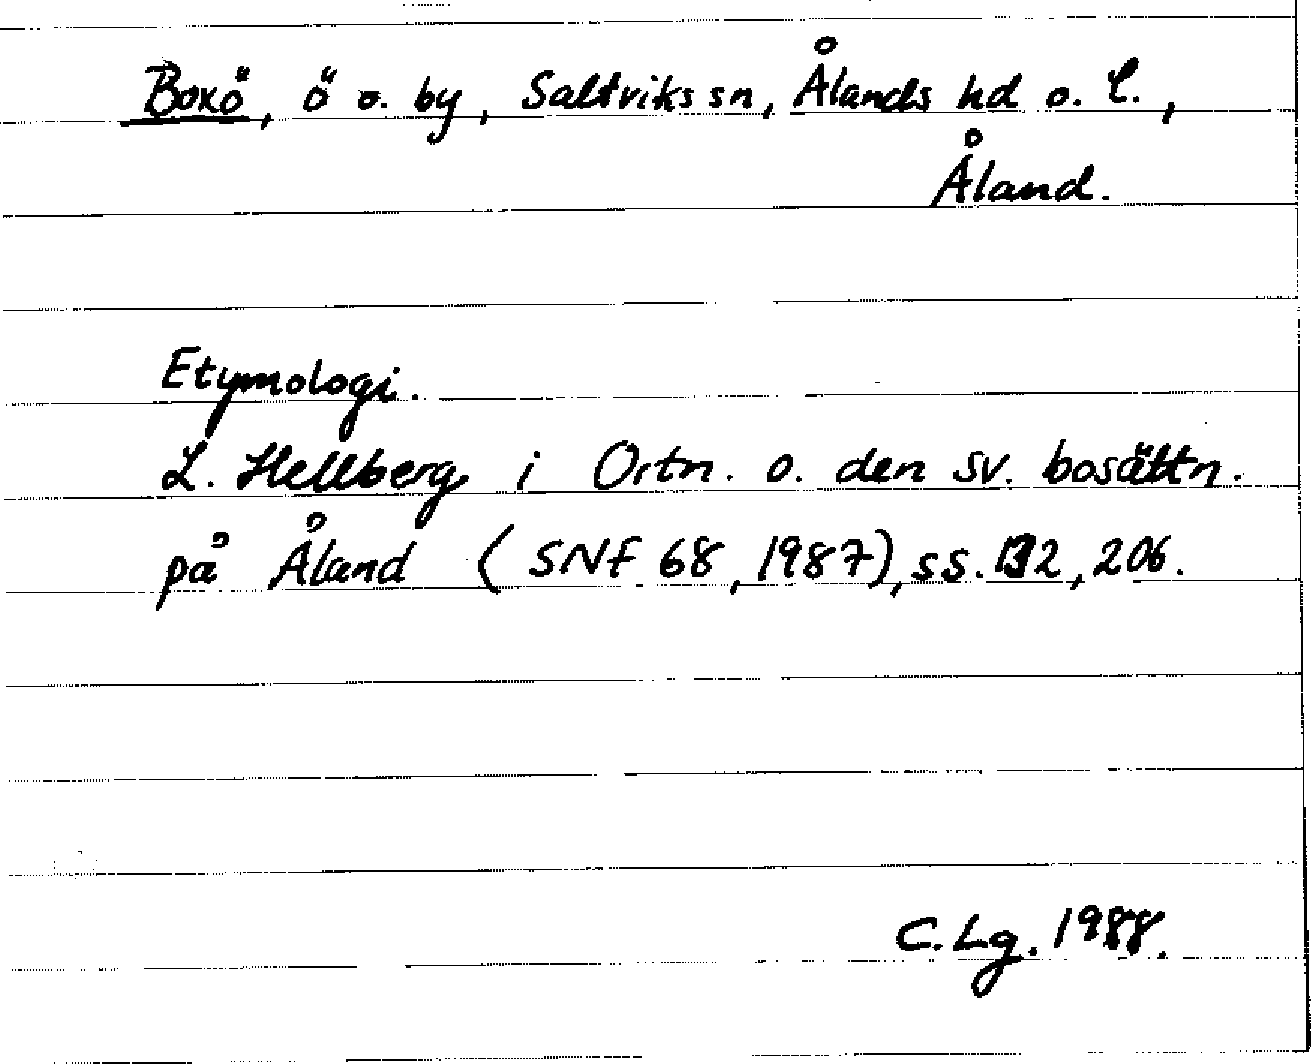 Boxö, ö o. by, Saltviks sn, Ålands hd o. l.,
Åland.
Etymologi.
L. Hellberg i Ortn. o. den sv. bosättn.
på Åland (SNF 68, 1987), ss. 132, 206.
C. Lg. 1988.